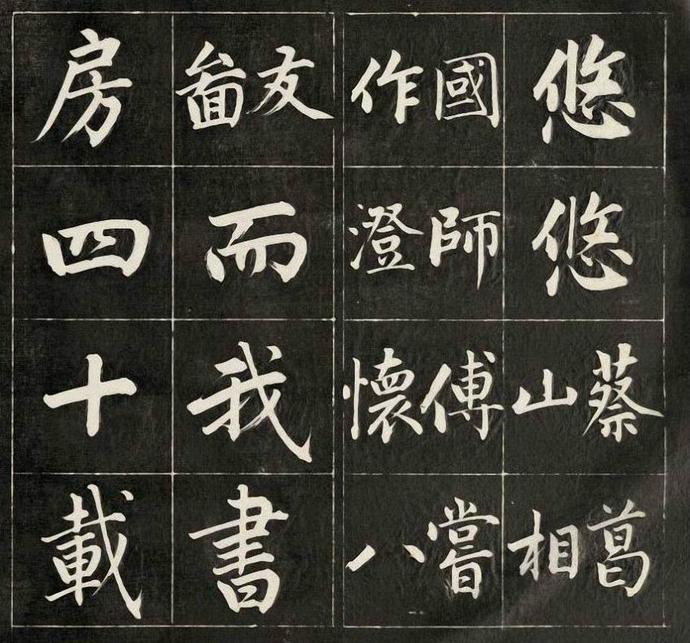 悠悠蔡葛
山相
國師傅嘗
作澄懷八
友
而我書
房四十載